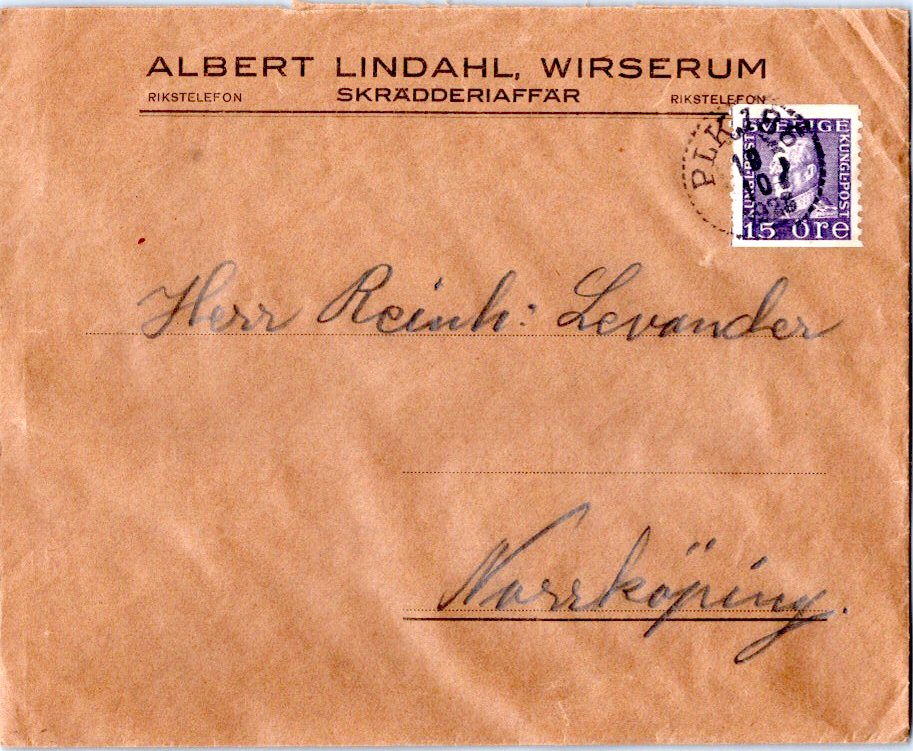 ALBERT LINDAHL, WIRSERUM
RIKSTELEFON SKRÄDDERIAFFÄR RIKSTELEFON
SVERIGE
KUNGL. POST
KUNGL. POST
15 öre
PLK
Herr Reinh: Levander
Norrköping.